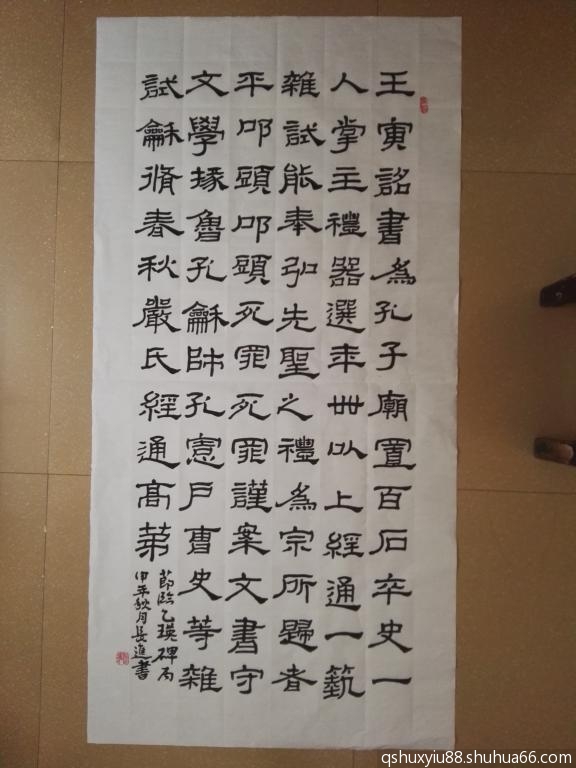 王寅詔書為孔子廟置百石卒史一
人掌主禮器選年卌以上經通一藝
雜試能奉弘先聖之禮為宗所歸者
平叩頭叩頭死罪死罪謹案文書守
文學掾魯孔龢師孔憲戶曹史等雜
試龢脩春秋嚴氏經通高第
節臨乙瑛碑
秋月長進書
qshuxyiu88.shuhua66.com